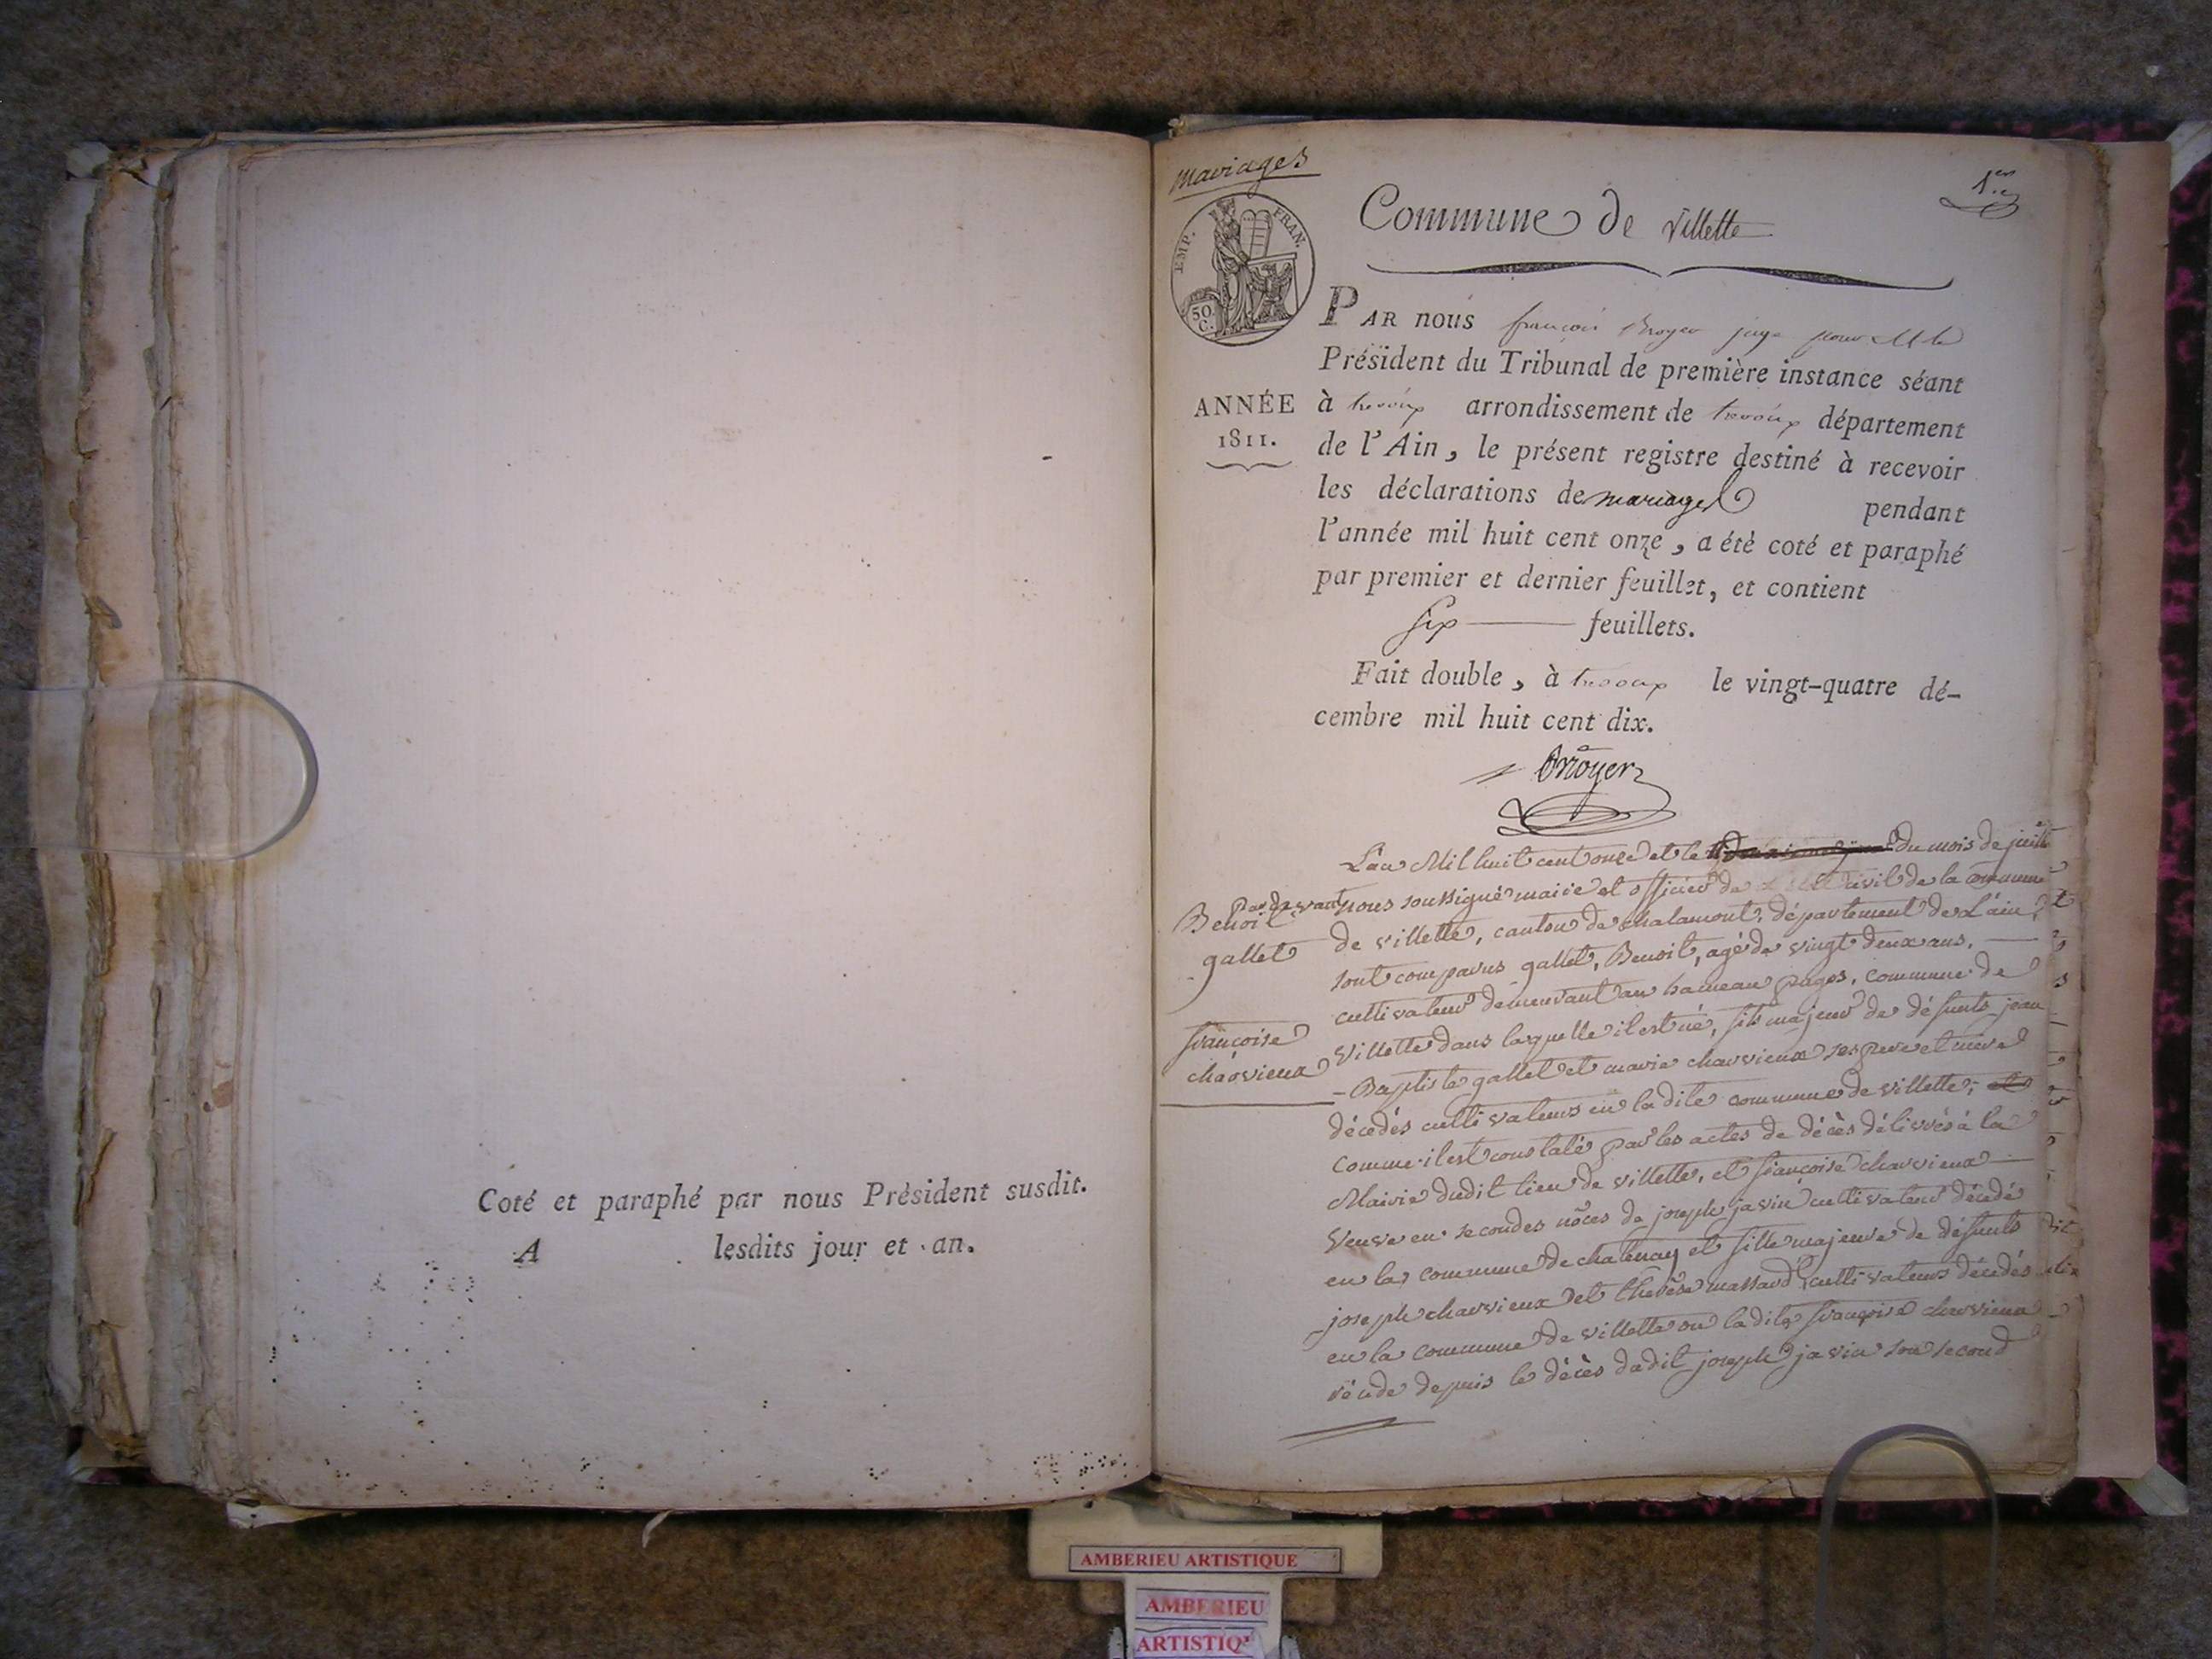 Coté et paraphé par nous Président susdit.
A lesdits jour et an.
Mariages
1.er
EMP. FRAN.
50 C.
Commune de Villette
ANNÉE
1811.
PAR nous françois Broyer juge pour M le
Président du Tribunal de première instance séant
à trevoux arrondissement de trevoux département
de l'Ain, le présent registre destiné à recevoir
les déclarations de mariages pendant
l'année mil huit cent onze, a été coté et paraphé
par premier et dernier feuillet, et contient
six feuillets.
Fait double, à trevoux le vingt-quatre dé-
cembre mil huit cent dix.
Broyer
Benoit
gallet
françoise
charvieux
L'an Mil huit cent onze et le du mois de juillet
Pardevant nous soussigné maire et officier de civil de la commune
de villette, canton de chalamont, département de L'ain,
sont comparus gallet, Benoit, agé de vingt deux ans,
cultivateur demeurant au hameau pages, commune de
Villette dans laquelle il est né, fils majeur de défunts jean
-Baptiste gallet et marie charvieux ses pere et mere
décédés cultivateurs en la dite commune de villette, et
comme il est constaté par les actes de décès délivrés à la
Mairie dudit lieu de villette, et françoise charvieux
Veuve en secondes nôces de joseph javin cultivateur décédé
en la commune de chatenay et fille majeure de défunts
joseph charvieux et thérèse massard cultivateurs décédés
en la commune de villette ou ladite françoise charvieux
réside depuis le décès dudit joseph javin son second
AMBERIEU ARTISTIQUE
AMBERIEU
ARTISTIQ